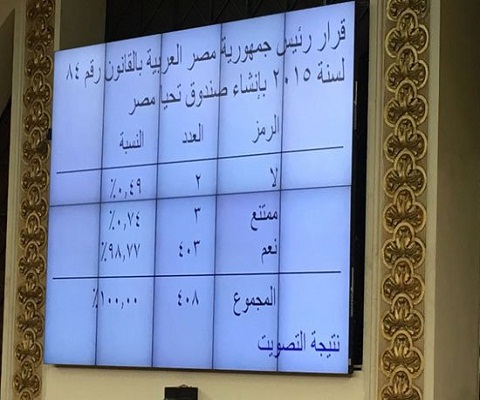 قرار رئيس جمهورية مصر العربية بالقانون رقم ٨٤
لسنة ٢٠١٥ بإنشاء صندوق تحيا مصر
الرمز العدد النسبة
لا ٢ ٠,٤٩٪
ممتنع ٣ ٠,٧٤٪
نعم ٤٠٣ ٩٨,٧٧٪
المجموع ٤٠٨ ١٠٠,٠٠٪
نتيجة التصويت